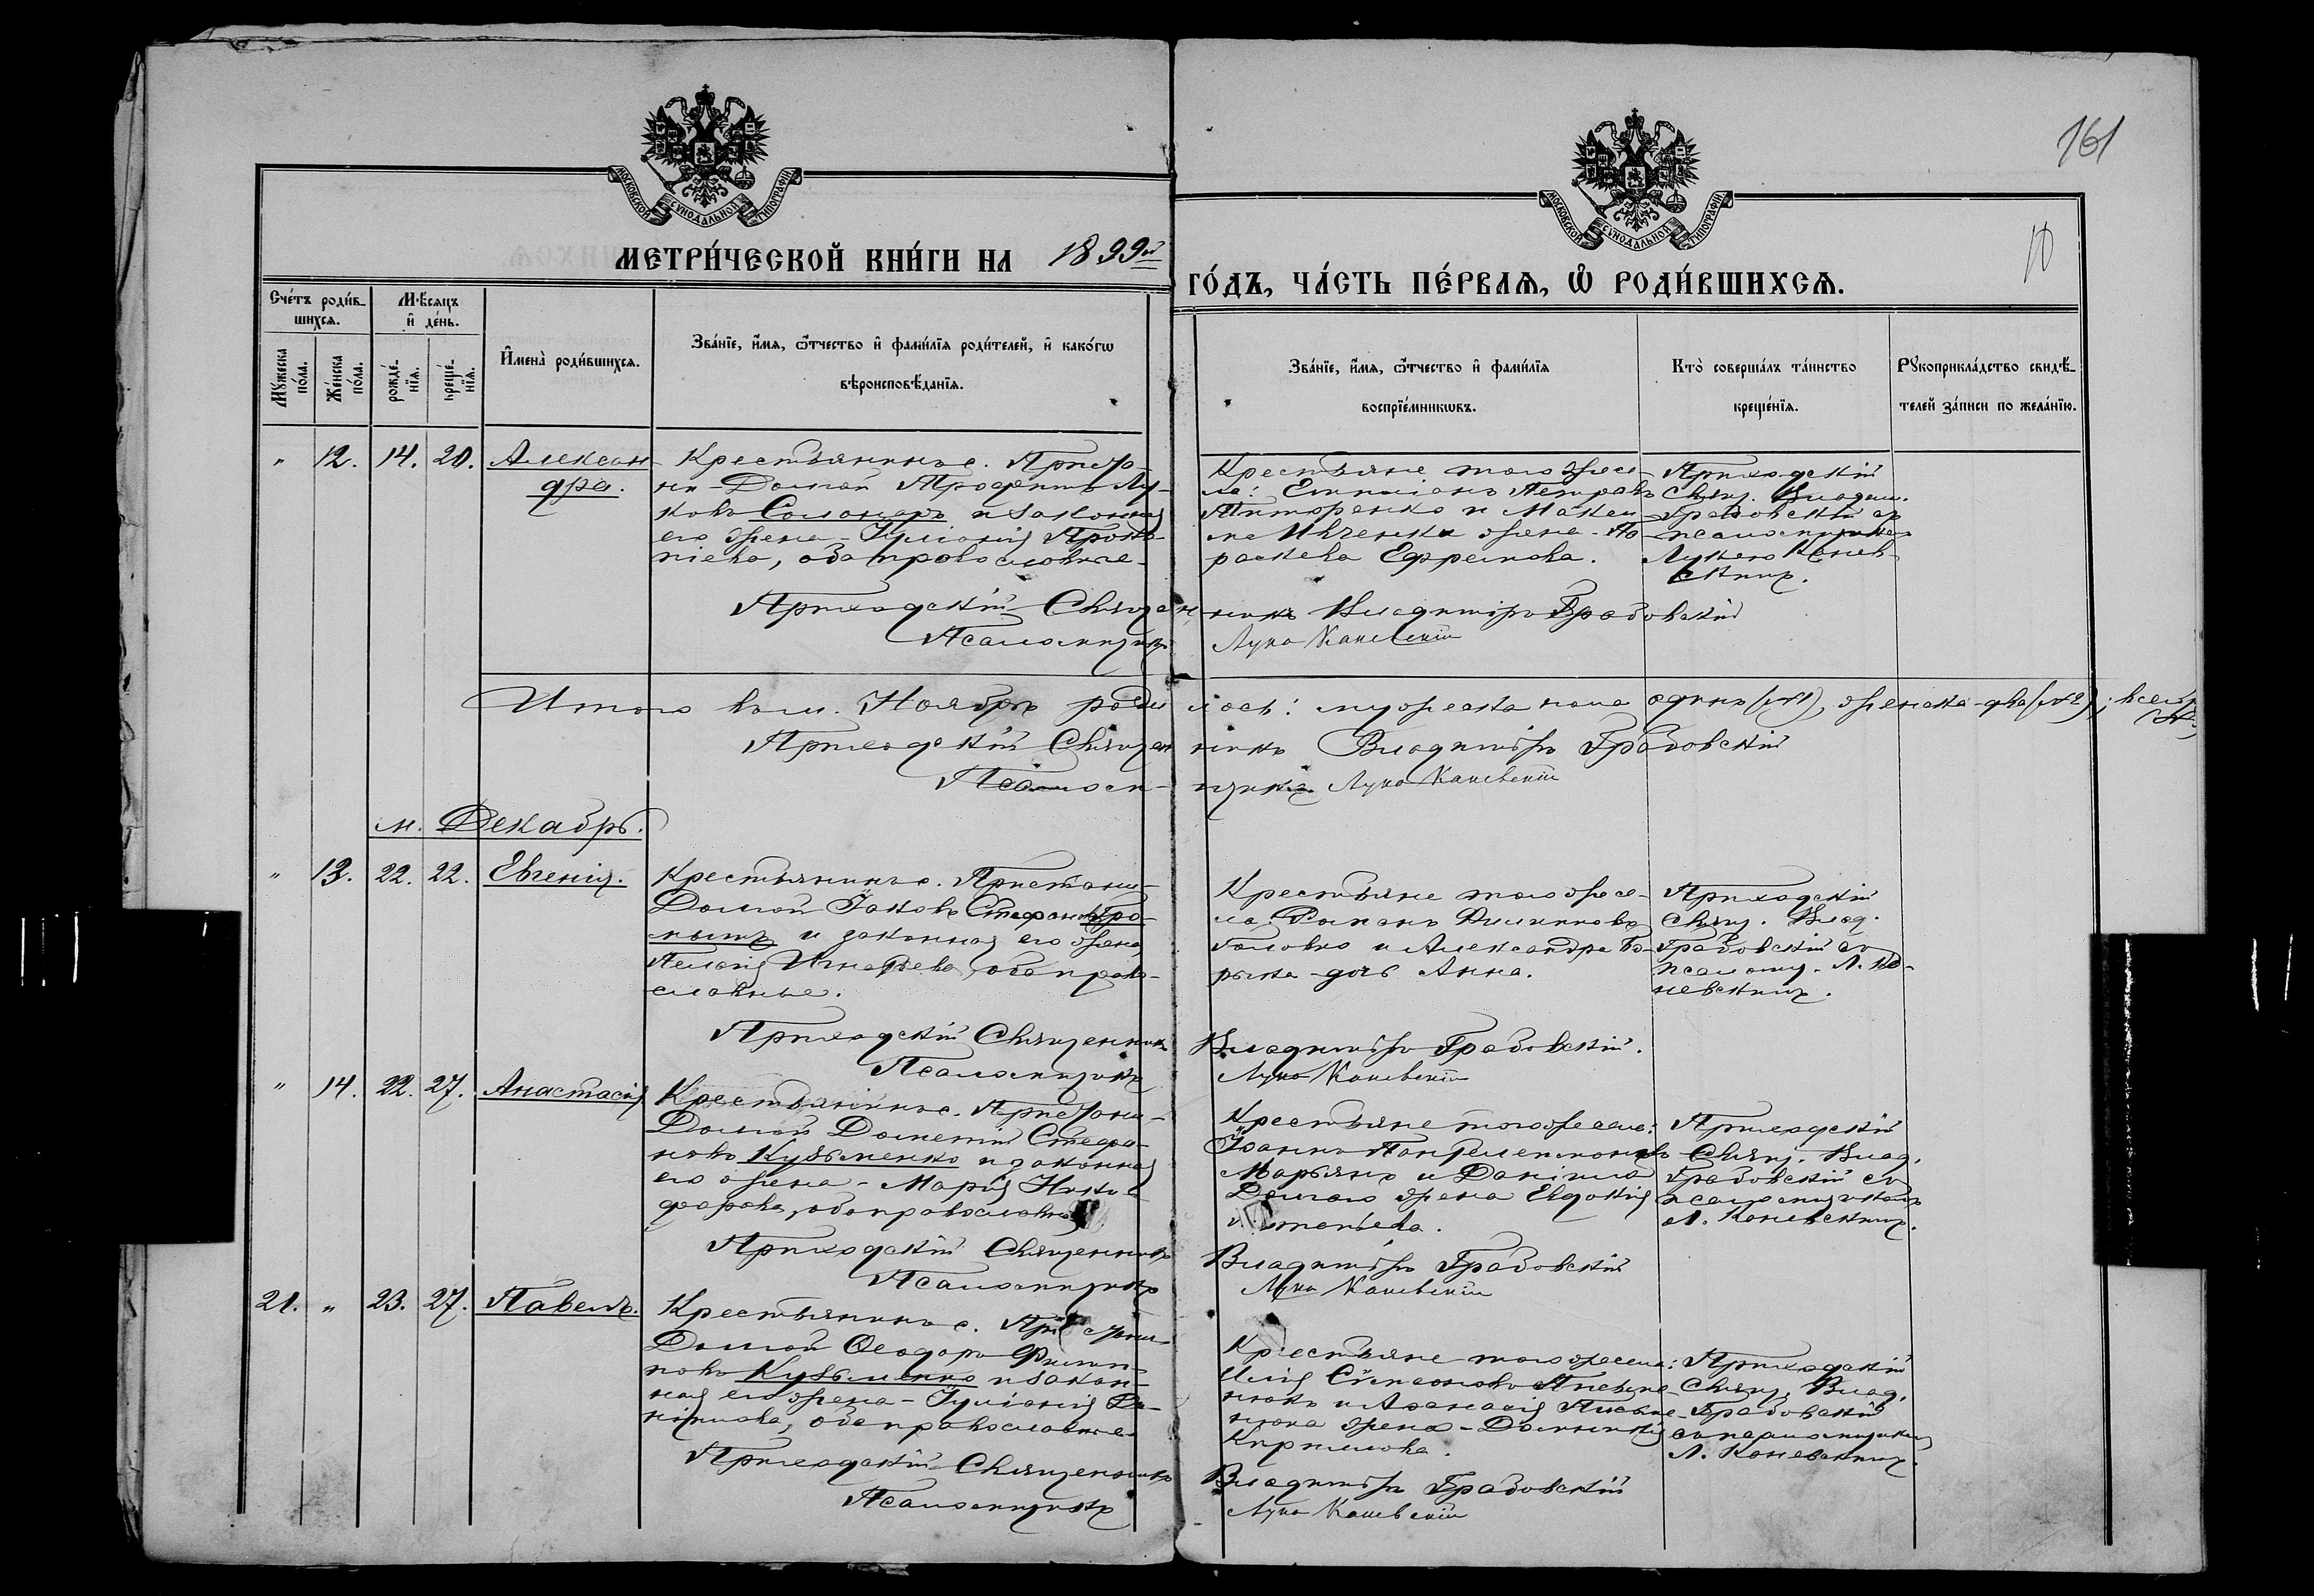 161
10
МОСКОВСКОЙ СѴНОДАЛЬНОЙ ТИПОГРАФІИ
МОСКОВСКОЙ СѴНОДАЛЬНОЙ ТИПОГРАФІИ
МЕТРИ́ЧЕСКОЙ КНИ́ГИ НА 1899й
ГО́ДЪ, ЧА́СТЬ ПЕ́РВАѦ, Ѡ҆ РОДИ́ВШИХСѦ.
Сче́тъ роди́в-
шихсѧ.
Мꙋ́жеска по́ла.
Же́нска по́ла.
Мѣ́сѧцъ
и҆ де́нь.
рожде́-
нїѧ.
креще́-
нїѧ.
И҆мена̀ роди́вшихсѧ.
Зва́нїе, и҆́мѧ, ѻ҆́тчество и҆ фами́лїѧ роди́телей, и҆ како́гѡ
вѣроисповѣ́данїѧ.
Зва́нїе, и҆́мѧ, ѻ҆́тчество и҆ фами́лїѧ
воспрїе́мникѡвъ.
Кто̀ соверша́лъ та́инство
креще́нїѧ.
Рꙋкоприкла́дство свидѣ́-
телей за́писи по жела́нїю.
" 12. 14. 20. Алексан-
дра.
Крестьянинъ с. Пристȣ-
ни-Долгой Прокопіи Лу-
ковъ и законная
его жена - Іуліанія Проко-
піева, оба православные.
Крестьяне того же се-
ла: Емиліанъ Петровъ
Титоренко и
Ивченка жена - Па-
раскева Ефремова.
Приходскій
Свящ. Владим.
Грабовскій съ
псаломщикомъ
Лукою Канев-
скимъ.
Приходскій Священникъ Владиміръ Грабовскій
Псаломщикъ Лука Каневскій
Итого въ м. Ноябрѣ роди лось: мужеска пола одинъ (№1), женска - два (№2);
Приходскій Священ никъ Владиміръ Грабовскій
Псалом- щикъ Лука Каневскій
м. Декабрь.
" 13. 22. 22. Евгенія.
Крестьянинъ с. Пристани-
Долгой Іаковъ Стефановъ Гро-
мыхъ и законная его жена
Пелагія Игнатьева, оба право-
славные.
Крестьяне того же се-
ла: Романъ Филипповъ
Головко и Александра Бо-
рыка - дочь Анна.
Приходскій
Свящ. Влад.
Грабовскій съ
псаломщ. Л. Ка-
невскимъ.
Приходскій Священникъ Владиміръ Грабовскій.
Псаломщикъ Лука Каневскій
" 14. 22. 27. Анастасія
Крестьянинъ с. Пристани-
Долгой Дометій Стефа-
новъ Кузьменко и законная
его жена - Марія Ники-
форова, оба православные
Крестьяне того же села:
Іоаннъ Пантелеимоновъ
Марьянъ и Даніила
Долгаго жена Евдокія
Приходскій
Свящ. Влад.
Грабовскій съ
псаломщикомъ
Л. Каневскимъ.
Приходскій Священникъ Владиміръ Грабовскій
Псаломщикъ Лука Каневскій
21. " 23. 27. Павелъ.
Крестьянинъ с. Пристани-
Долгой Ѳеодоръ Филип-
повъ Кузьменко и закон-
ная его жена - Іуліанія Ди-
митріева, оба православные
Крестьяне того же села:
Илія Симеоновъ Письме-
нюкъ и Аѳанасія Письме-
нюка жена - Домникія
Кириллова.
Приходскій
Свящ. Влад.
Грабовскій
съ псаломщикомъ
Л. Каневскимъ.
Приходскій Священникъ Владиміръ Грабовскій
Псаломщикъ Лука Каневскій